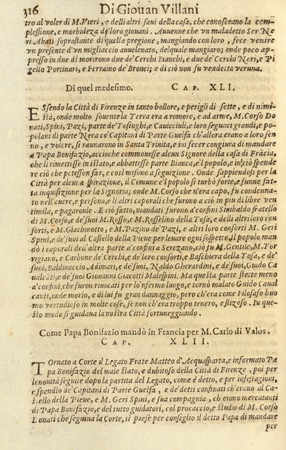 316 Di Giouan Villani
tro al voler di M. Pieri, e delli altri sani della casa, che conosceano la com-
plessione, e morbidezza de' loro giovani. Auuenne che un maladetto Ser Ne
ri Abati soprastante di quella pregione, mangiando con loro, fece venire
un presente d'un migliaccio auuelenato, del quale mangiaro; onde poco ap-
presso in due dì morirono due de' Cerchi Bianchi, e due de' Cerchi Neri, e Pi
gello Portinari, e Ferraino de' Bronci; e di ciò non fu vendetta veruna.
Di quel medesimo. CAP. XLI.
ESsendo la Città di Firenze in tanto bollore, e perigli di sette, e di nimi-
stà, onde molto souente la Terra era a romore, e ad arme, M. Corso Do
nati, Spini, Pazi, parte de' Tosinghi, Cauicciuli, e loro seguaci grandi, e po-
polani di parte Nera co' Capitani di Parte Guelfa ch'allora erano a loro sen-
no, e volere, si raunarono in Santa Trinita, e iui fecer congiura di mandare
a Papa Bonifazio, acciocche commouesse alcun Signore della casa di Frácia,
che li rimettesse in istato, e abbattesse parte Bianca, e'l popolo, e in ciò spende
re ciò che potesser far, e così misono a seguizione. Onde sappiendosi per la
Città per alcuna spirazione, il Comune e'l popolo si turbò forte, e funne fat-
ta inquisizione per la Signoria; onde M. Corso che n'era capo, fu condennato
nell'auere, e persona, e li altri caporali che furono a ciò in piu di libre ven
timila, e pagaronle. E ciò fatto, mandati furono a confini Sinibaldo fratello
di M. Corso, e de' suoi M. Rosso, M. Rossellino della Tosa, e delli altri loro con
sorti, e M. Giachinotto, e M. Pazino de' Pazi, e altri loro consorti. M. Geri
Spini, e de' suoi al Castello della Pieue per leuare ogni sospetto, il popolo man
dò i caporali dell'altra parte a confini a Serezano, ciò fu M. Gentile, M. Tor-
rigiano, e Carbone de' Cerchi, e de' loro consorti, e Baschiera della Tosa, e de'
suoi, Baldinaccio Adimari, e de' suoi, Naldo Gherardini, e de' suoi, Guido Ca
ualcáti, e de' suoi Giouanni Giacotti Malespini. Ma questa parte stette meno
a' confini, che furon riuocati per lo'nfermo luogo, e tornò malato Guido Caual
canti, onde morìo, e di lui fu gran dannaggio, pero ch'era come Filosafo huo
mo vertudioso in molte cose, se non ch'era troppo tenero, e stizoso. In que-
sto modo si guidaua la nostra Città fortuneggiando.
Come Papa Bonifazio mandò in Francia per M. Carlo di Valos.
CAP. XLII.
TOrnato a Corte il Legato Frate Matteo d'Acquasparta, e informato Pa
pa Bonifazio del male stato, e dubitoso della Città di Firenze, poi per
le nouità seguite dopo la partita del Legato, come è detto, e per infestagioni,
e spendio de' Capitani di Parte Guelfa, e de' detti confinati ch'erano al Ca-
stello della Pieue, e M. Geri Spini, e sua compagnia, ch'erano mercatanti
di Papa Bonifazio, e del tutto guidatori, col procaccio, e studio di M. Corso
Donati che seguiua la Corte, si prese per consiglio il detto Papa di mandare
per